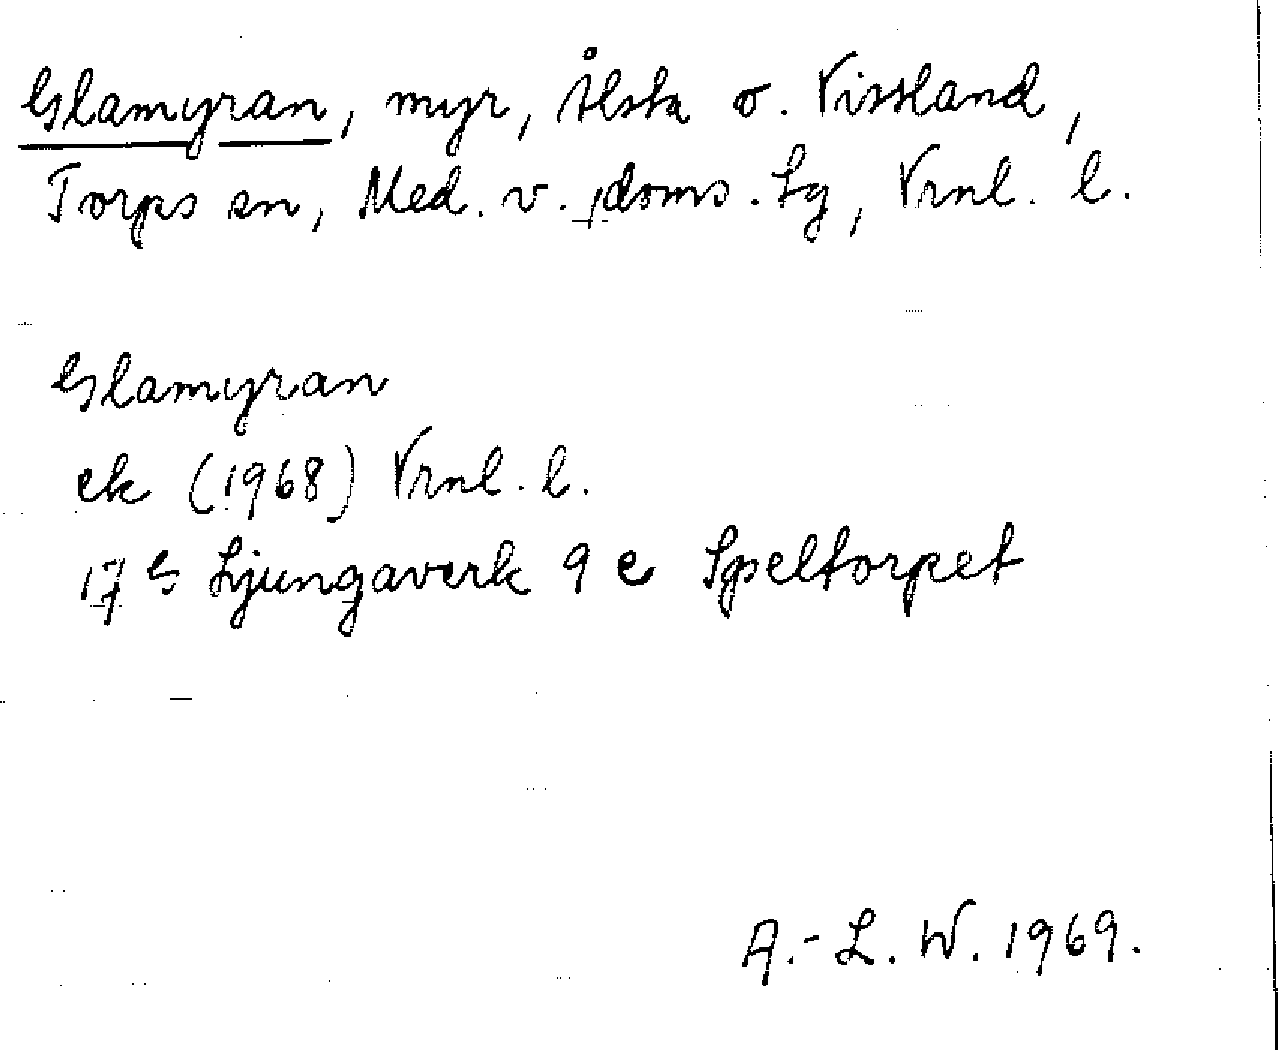 Glamyran, myr, Ålsta o. Vissland,
Torps sn, Med. v. doms. Lg, Vrnl. l.
Glamyran
ek (1968) Vrnl. l.
17 G Ljungaverk 9 e Speltorpet
A.-L. W. 1969.